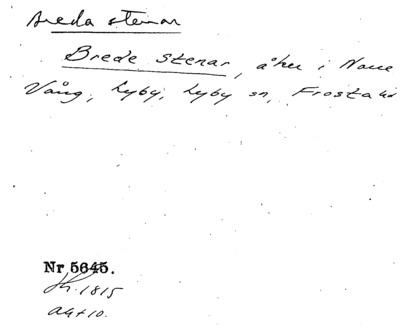 Breda stenar
Brede stenar, åker i Norre
Vång, Lyby, Lyby sn, Frosta hd
Nr 5645.
Sk. 1815